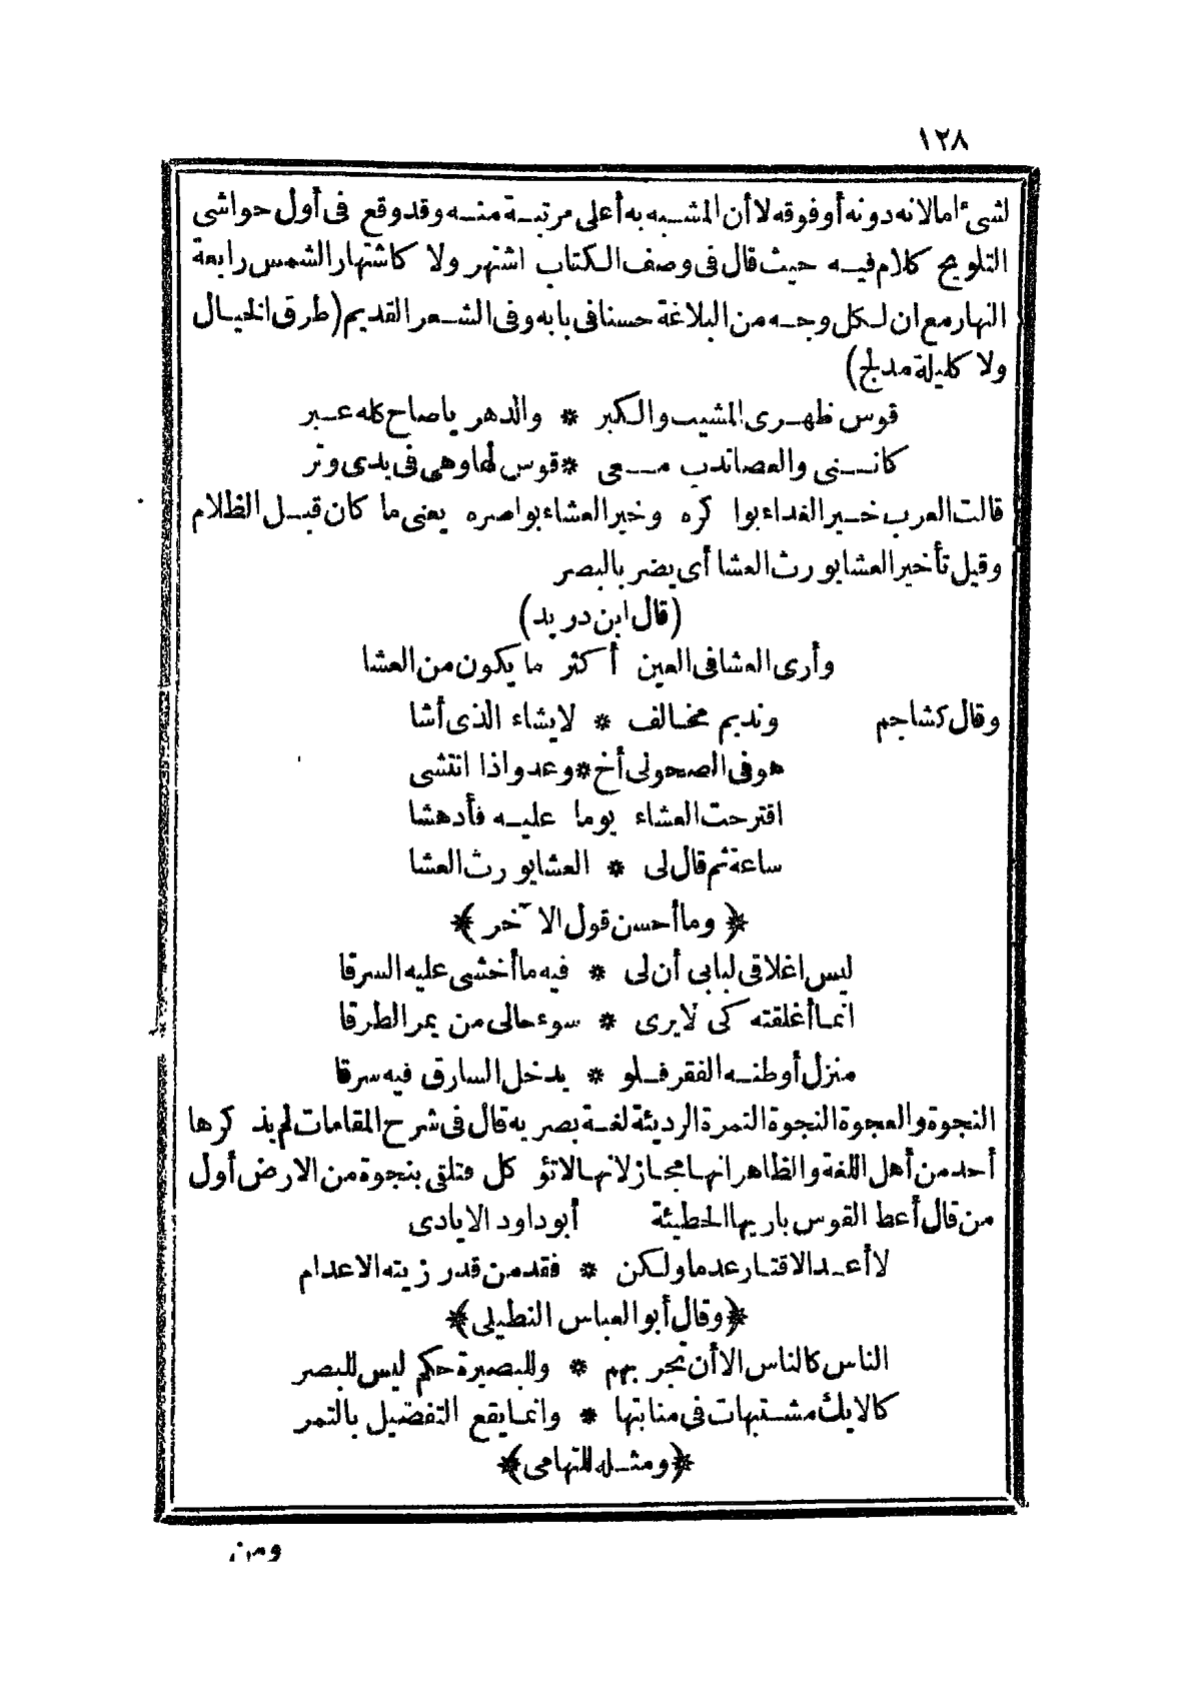 ١٢٨
لشئ امالانه دونه أو فوقه لا أن المشبه به أعلى مرتبة منه وقد وقع فى أول حواشى
التلويح كلام فيه حيث قال فى وصف الكتاب اشتهر ولا كاشتهار الشمس رابعة
النهار مع ان لكل وجه من البلاغة حسنا فى بابه وفى الشعر القديم (طرق الخيال
ولا كليلة مدلج)
قوس ظهرى المشيب والكبر * والدهر ياصاح كله عبر
كاننى والعصا تدب معى * قوس لها وهى فى يدى وتر
قالت العرب خير الغداء بوا كره وخير العشاء بواصره يعنى ما كان قبل الظلام
وقيل تأخير العشا يورث العشا أى يضر بالبصر
(قال ابن دريد)
وأرى العشا فى العين أكثر ما يكون من العشا
وقال كشاجم ونديم مخالف * لايشاء الذى أشا
هو فى الصحولى أخ * وعدو اذا انتشى
اقترحت العشاء يوما عليه فأدهشا
ساعة ثم قال لى * العشا يورث العشا
﴿ وما أحسن قول الآخر ﴾
ليس اغلاقى لبابى أن لى * فيه ما أخشى عليه السرقا
انما أغلقته كى لايرى * سوء حالى من يمر الطرقا
منزل أوطنه الفقر فلو * يدخل السارق فيه سرقا
النجوة والعجوة النجوة التمرة الرديئة لغة بصرية قال فى شرح المقامات لم يذ كرها
أحد من أهل اللغة والظاهر انها مجاز لانها لاتؤ كل فتلقى بنجوة من الارض أول
من قال أعط القوس باريها الحطيئة أبو داود الايادى
لا أعد الاقتار عدما ولكن * فقد من قدر زيته الاعدام
﴿وقال أبو العباس النطيلى﴾
الناس كالناس الا أن تجربهم * وللبصيرة حكم ليس للبصر
كالايك مشتبهات فى منابتها * وانما يقع التفضيل بالثمر
﴿ومثله للتهامى﴾
ومن